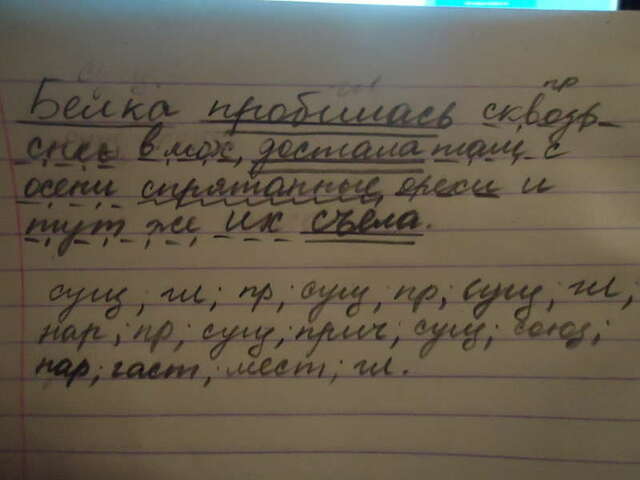 пр
Белка пробилась сквозь
снег в мох, достала там с
осени спрятанные орехи и
тут же их съела.
сущ; гл; пр; сущ; пр; сущ; гл;
нар; пр; сущ; прич; сущ; союз;
нар; част; мест; гл.